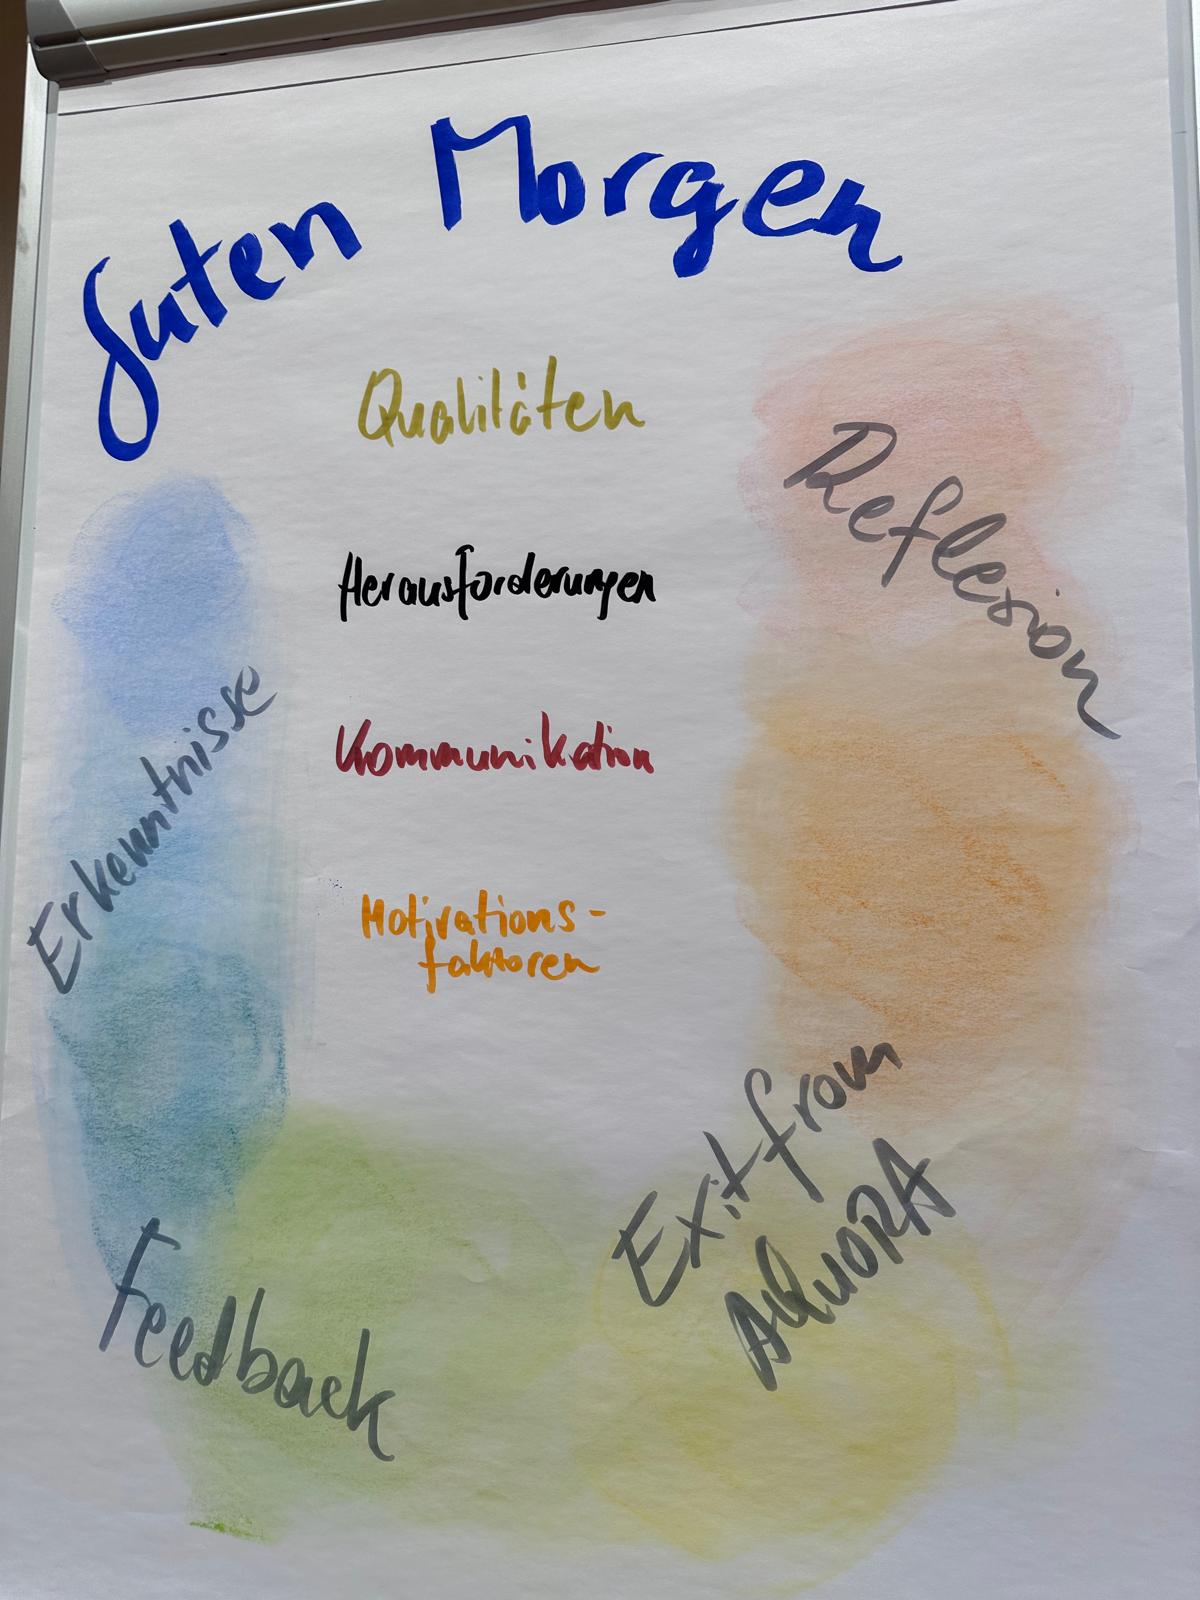 Guten Morgen
Qualitäten
Reflexion
Herausforderungen
Erkenntnisse
Kommunikation
Motivations-
faktoren
Exit from
AQUORA
Feedback